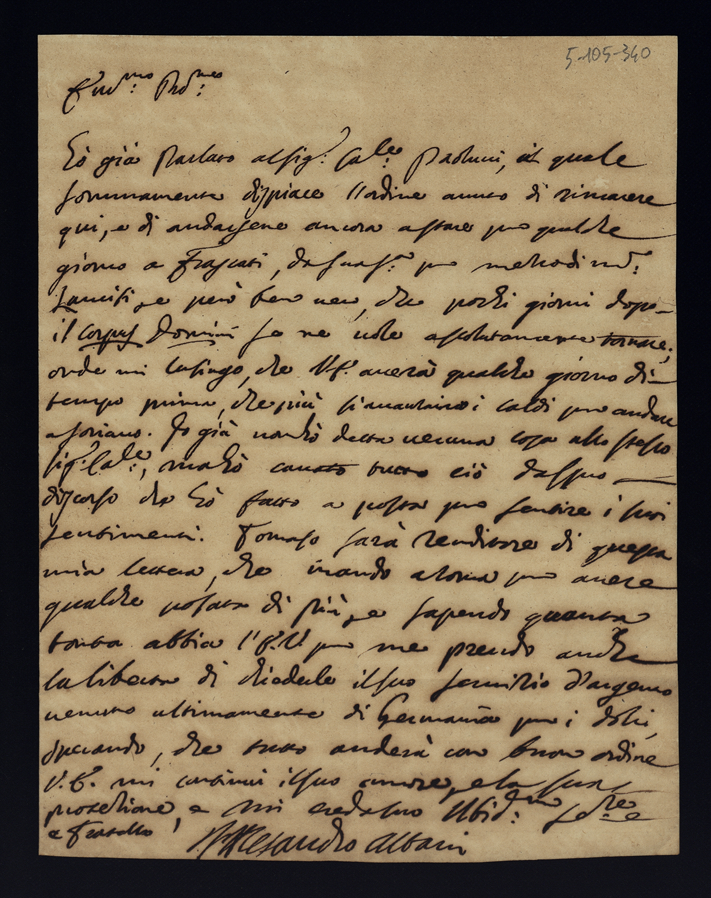 5-105-340
Em.mo Pad.ne
Hò già Parlato al sig.r Ca.le Paolucci, il quale
sommamente dispiace l'ordine avuto di rimanere
qui, e di andarsene ancora a stare per qualche
giorno a Frascati, da sua s.tà per
e però ben vero, che pochi giorni dopo
il Corpus Domini se ne vole assolutamente tornare,
onde mi lusingo, che V.E. averà qualche giorno di
tempo prima, che più s'avanzino i caldi per andare
a soriano. Io già non hò detta veruna cosa allo stesso
sig.r Ca.le, ma hò cavato tutto ciò dal suo
discorso che hò fatto a posta per sentire i suoi
sentimenti. Tomaso sarà renditore di questa
mia lettera, che mando a roma per avere
qualche posata di più, e sapendo quanta
bontà abbia l'E.V. per me prendo anche
la libertà di chiederle il suo servitio d'argento
venuto ultimamente di Germania per i dolci,
sperando, che tutto anderà con buon ordine
V.E. mi continui il suo amore, e la sua
protettione, e mi creda suo Ubid.mo se.re
e Fratello
Alesandro Albani